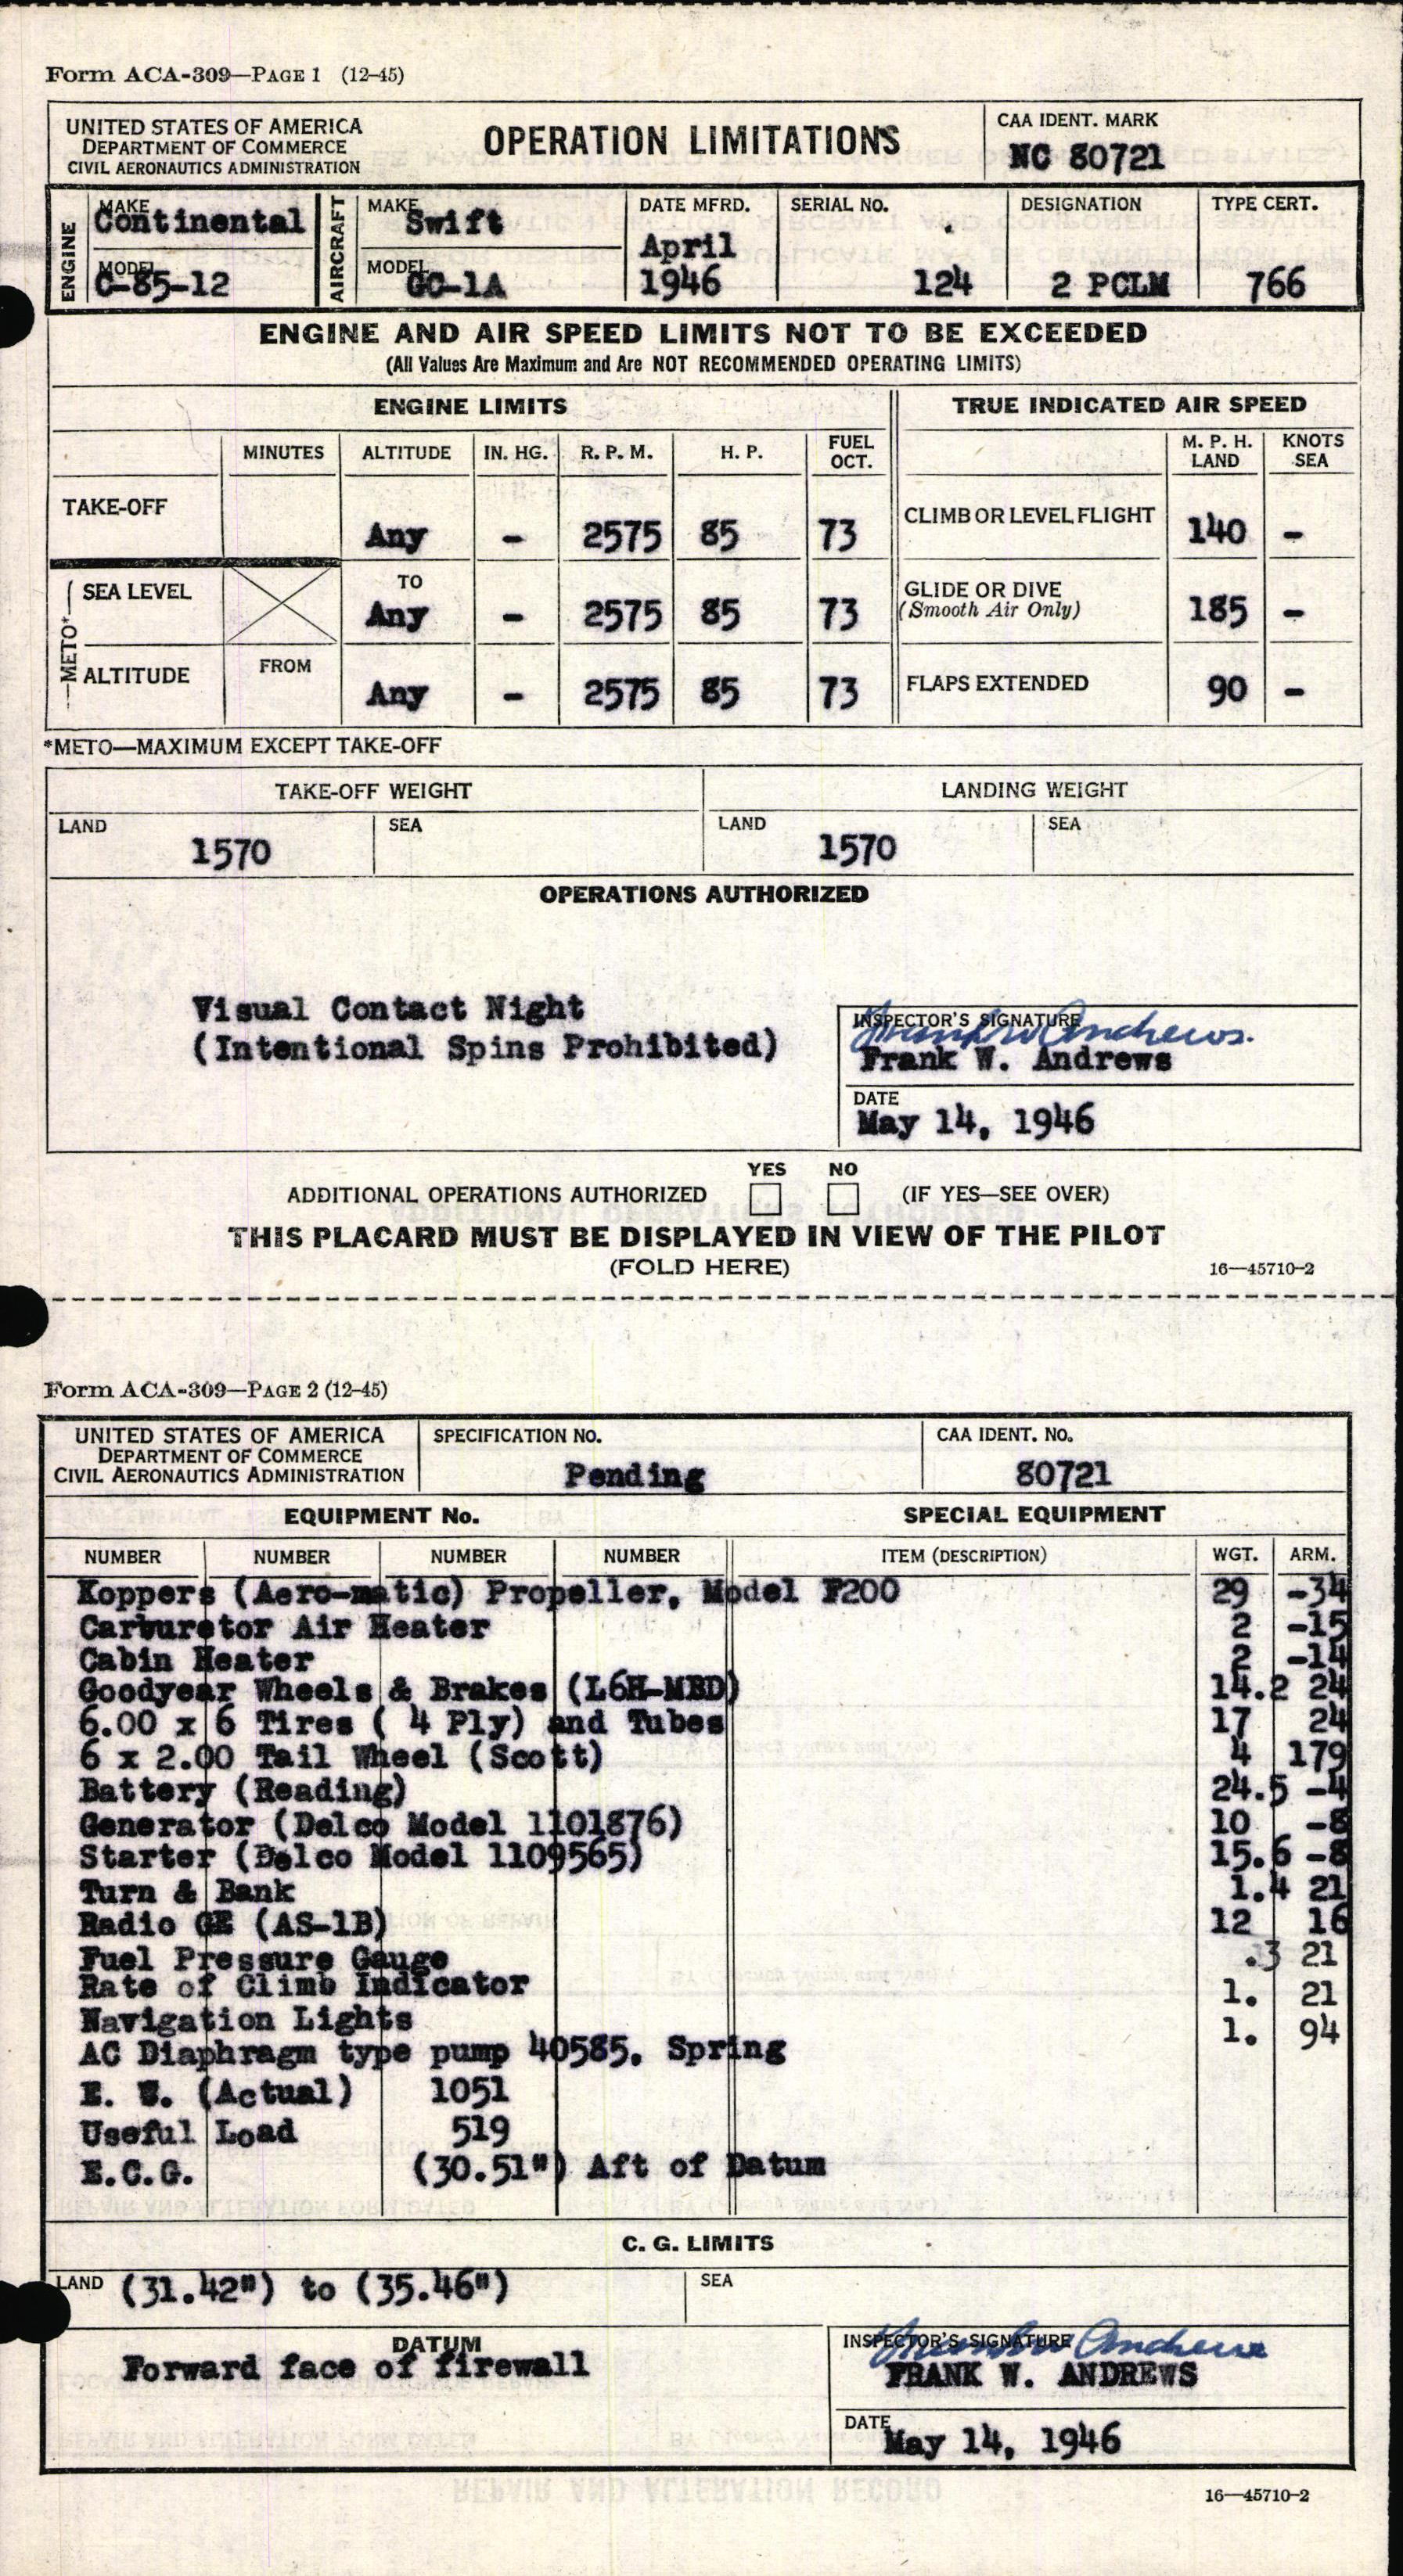 Form ACA-309—PAGE 1 (12-45)
UNITED STATES OF AMERICA
DEPARTMENT OF COMMERCE
CIVIL AERONAUTICS ADMINISTRATION
OPERATION LIMITATIONS
CAA IDENT. MARK
NC 80721
ENGINE
MAKE
Continental
MODEL
C-85-12
AIRCRAFT
MAKE
Swift
MODEL
GC-1A
DATE MFRD.
April
1946
SERIAL NO.
124
DESIGNATION
2 PCLM
TYPE CERT.
766
ENGINE AND AIR SPEED LIMITS NOT TO BE EXCEEDED
(All Values Are Maximum and Are NOT RECOMMENDED OPERATING LIMITS)
ENGINE LIMITS
TRUE INDICATED AIR SPEED
MINUTES ALTITUDE IN. HG. R. P. M. H. P. FUEL OCT. M. P. H. LAND KNOTS SEA
TAKE-OFF Any - 2575 85 73 CLIMB OR LEVEL FLIGHT 140 -
—METO*—
SEA LEVEL TO Any - 2575 85 73 GLIDE OR DIVE (Smooth Air Only) 185 -
ALTITUDE FROM Any - 2575 85 73 FLAPS EXTENDED 90 -
*METO—MAXIMUM EXCEPT TAKE-OFF
TAKE-OFF WEIGHT LANDING WEIGHT
LAND 1570 SEA LAND 1570 SEA
OPERATIONS AUTHORIZED
Visual Contact Night
(Intentional Spins Prohibited)
INSPECTOR'S SIGNATURE
Frank W. Andrews.
Frank W. Andrews
DATE
May 14, 1946
YES NO
ADDITIONAL OPERATIONS AUTHORIZED (IF YES—SEE OVER)
THIS PLACARD MUST BE DISPLAYED IN VIEW OF THE PILOT
(FOLD HERE)
16—45710-2
Form ACA-309—PAGE 2 (12-45)
UNITED STATES OF AMERICA
DEPARTMENT OF COMMERCE
CIVIL AERONAUTICS ADMINISTRATION
SPECIFICATION NO.
Pending
CAA IDENT. NO.
80721
EQUIPMENT No. SPECIAL EQUIPMENT
NUMBER NUMBER NUMBER NUMBER ITEM (DESCRIPTION) WGT. ARM.
Koppers (Aero-matic) Propeller, Model F200 29 -34
Carburetor Air Heater 2 -15
Cabin Heater 2 -14
Goodyear Wheels & Brakes (L6H-MBD) 14.2 24
6.00 x 6 Tires ( 4 Ply) and Tubes 17 24
6 x 2.00 Tail Wheel (Scott) 4 179
Battery (Reading) 24.5 -4
Generator (Delco Model 1101876) 10 -8
Starter (Delco Model 1109565) 15.6 -8
Turn & Bank 1.4 21
Radio GE (AS-1B) 12 16
Fuel Pressure Gauge .3 21
Rate of Climb Indicator 1. 21
Navigation Lights 1. 94
AC Diaphragm type pump 40585, Spring
E. W. (Actual) 1051
Useful Load 519
E.C.G. (30.51") Aft of Datum
C. G. LIMITS
LAND (31.42") to (35.46") SEA
DATUM
Forward face of firewall
INSPECTOR'S SIGNATURE
Frank W. Andrews
FRANK W. ANDREWS
DATE
May 14, 1946
16—45710-2